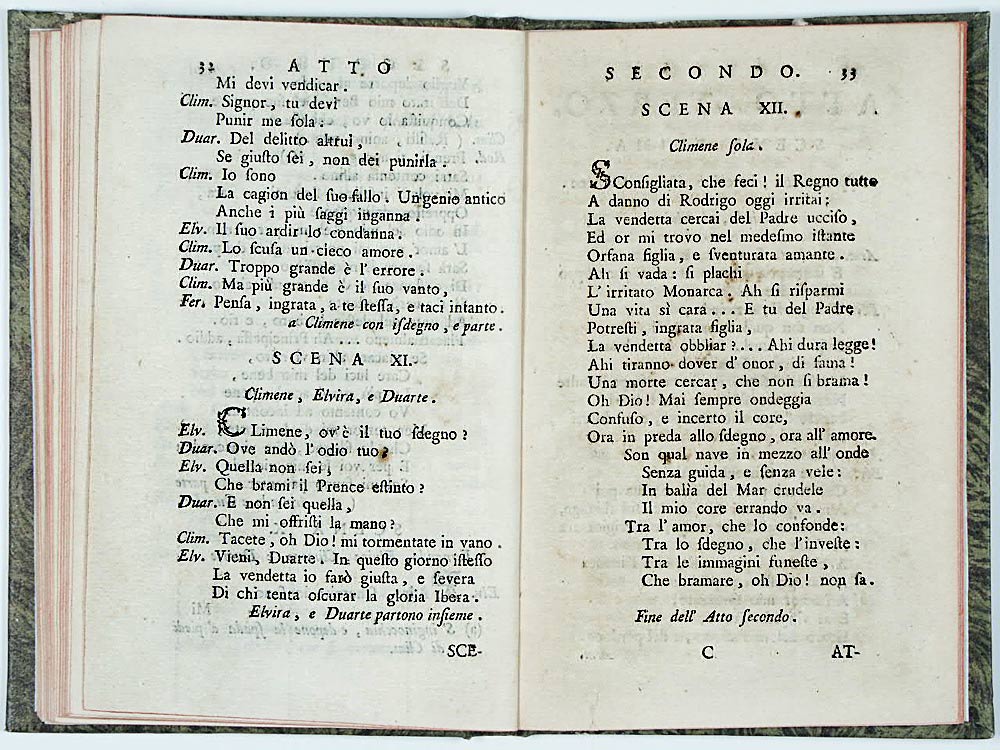 32 ATTO
Mi devi vendicar.
Clim. Signor, tu devi
Punir me ſola.
Duar. Del delitto altrui,
Se giuſto ſei, non dei punirla.
Clim. Io ſono
La cagion del ſuo fallo. Un genio antico
Anche i più ſaggi inganna.
Elv. Il ſuo ardir lo condanna.
Clim. Lo ſcuſa un cieco amore.
Duar. Troppo grande è l'errore.
Clim. Ma più grande è il ſuo vanto,
Fer. Penſa, ingrata, a te ſteſſa, e taci intanto.
a Climene con iſdegno, e parte.
SCENA XI.
Climene, Elvira, e Duarte.
Elv. CLimene, ov'è il tuo ſdegno?
Duar. Ove andò l'odio tuo?
Elv. Quella non ſei,
Che brami il Prence eſtinto?
Duar. E non ſei quella,
Che mi offriſti la mano?
Clim. Tacete, oh Dio! mi tormentate in vano.
Elv. Vieni, Duarte. In queſto giorno iſteſſo
La vendetta io farò giuſta, e ſevera
Di chi tenta oſcurar la gloria Ibera.
Elvira, e Duarte partono inſieme.
SCE-
SECONDO. 33
SCENA XII.
Climene ſola.
SConſigliata, che feci! il Regno tutto
A danno di Rodrigo oggi irritai;
La vendetta cercai del Padre ucciſo,
Ed or mi trovo nel medeſimo iſtante
Orfana figlia, e ſventurata amante.
Ah ſi vada: ſi plachi
L'irritato Monarca. Ah ſi riſparmi
Una vita sì cara... E tu del Padre
Potreſti, ingrata figlia,
La vendetta obbliar?... Ahi dura legge!
Ahi tiranno dover d'onor, di fama!
Una morte cercar, che non ſi brama!
Oh Dio! Mai ſempre ondeggia
Confuſo, e incerto il core,
Ora in preda allo ſdegno, ora all'amore.
Son qual nave in mezzo all'onde
Senza guida, e ſenza vele:
In balìa del Mar crudele
Il mio core errando va.
Tra l'amor, che lo confonde:
Tra lo ſdegno, che l'inveſte:
Tra le immagini funeſte,
Che bramare, oh Dio! non ſa.
Fine dell'Atto ſecondo.
C AT-